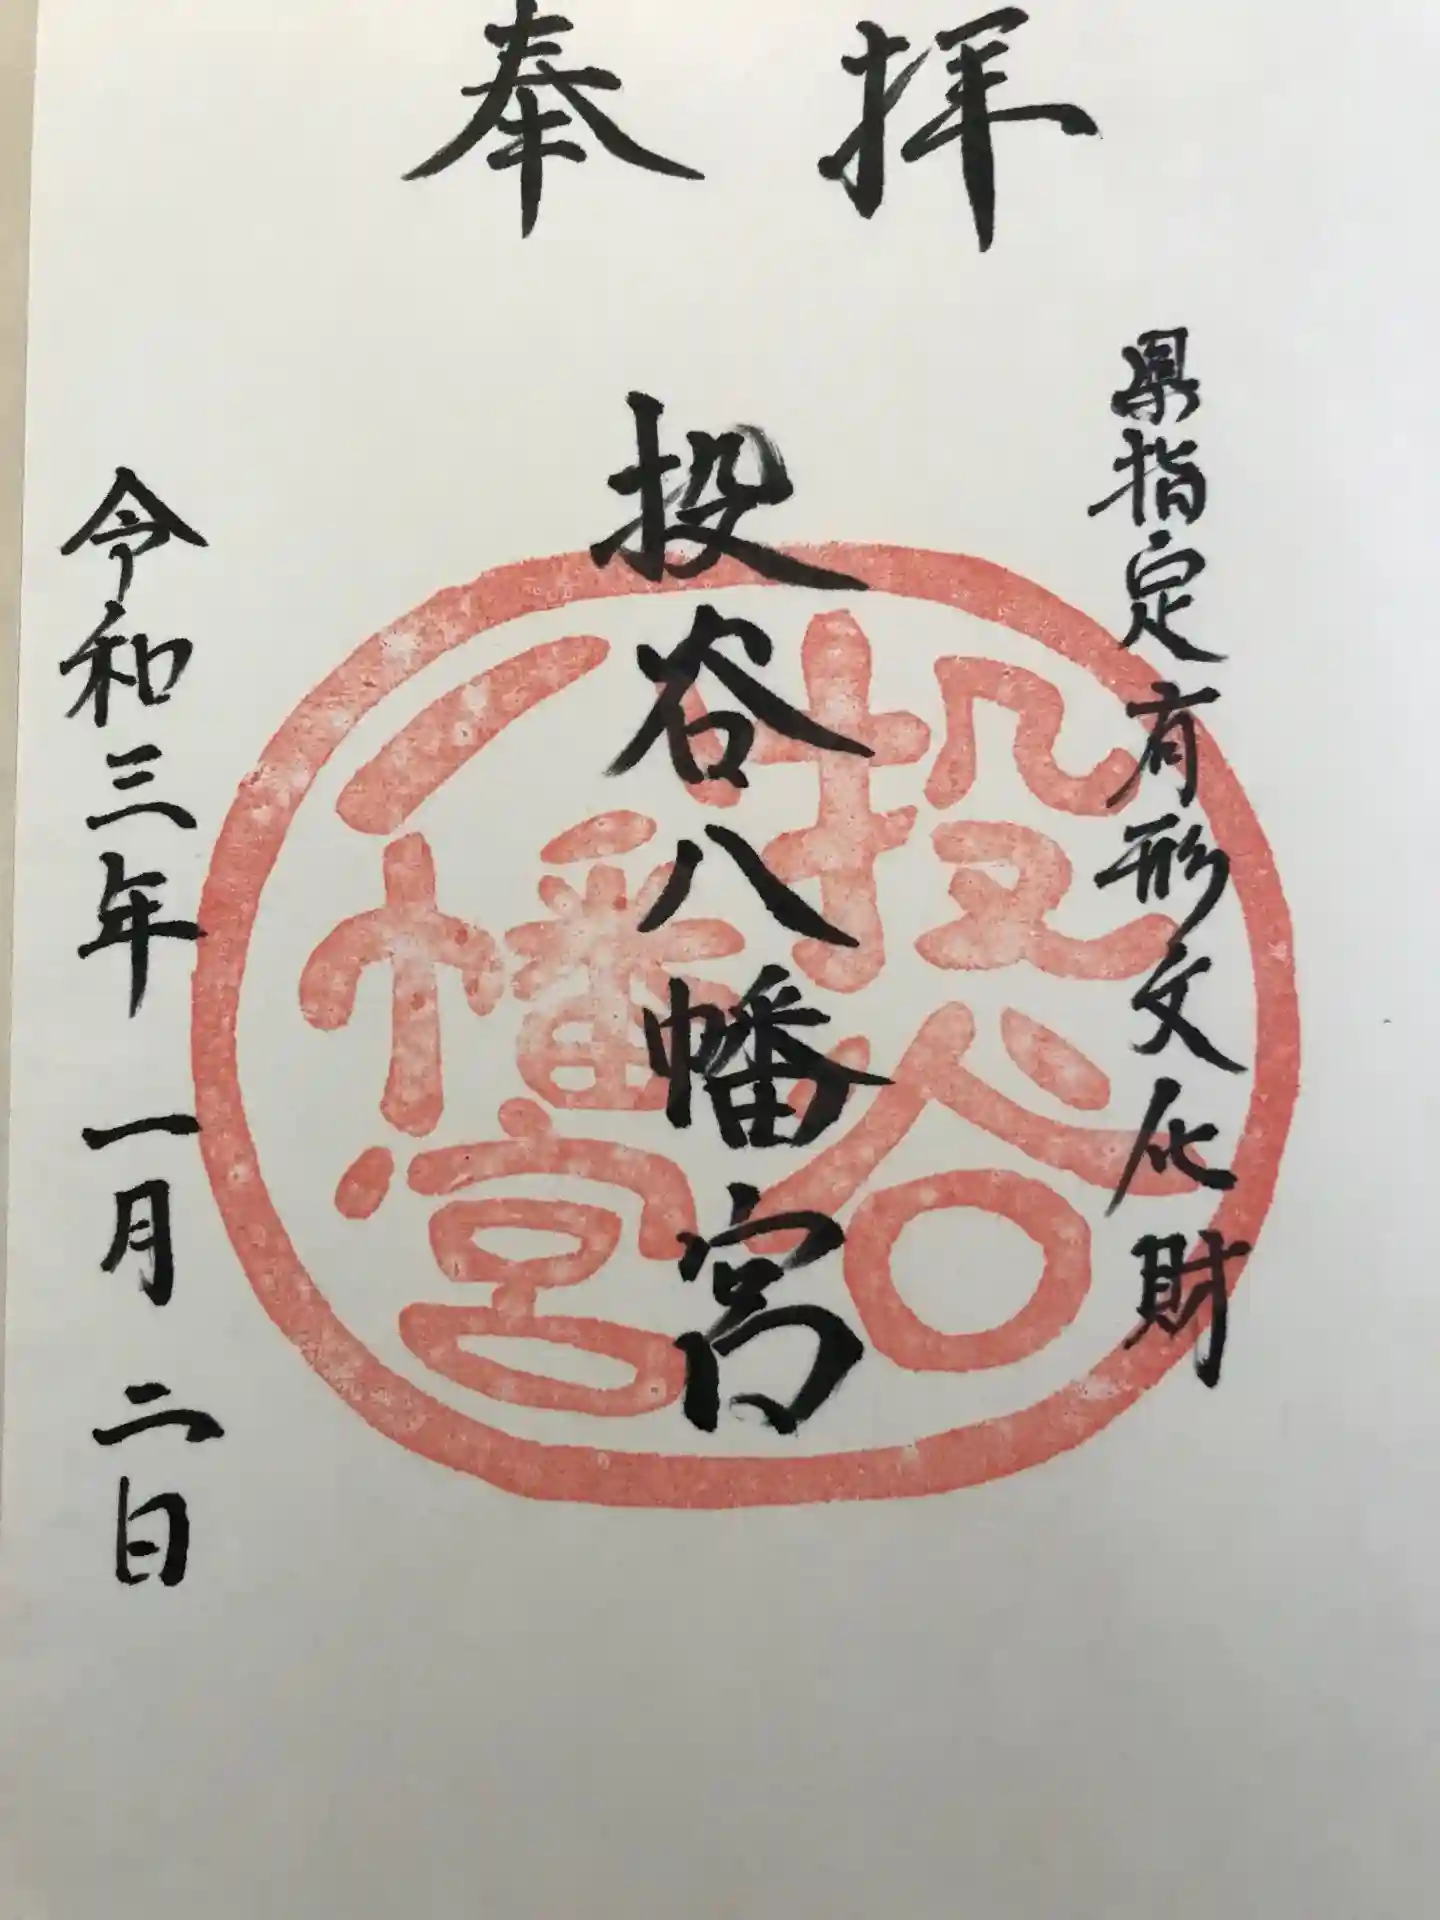 奉拝
県指定有形文化財
投谷八幡宮
投谷八幡宮
令和三年一月二日